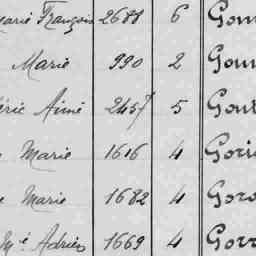 arie François 2688 6 Gou
Marie 990 2 Gou
éric Aimé 2457 5 Gou
Marie 1616 4 Gori
Marie 1682 4 Goro
Mie Adrien 1669 4 Gorr